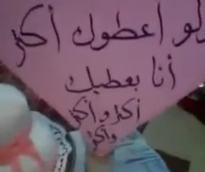 لو اعطوك أكثر
أنا بعطيك
أكثر وأكثر
وأكثر